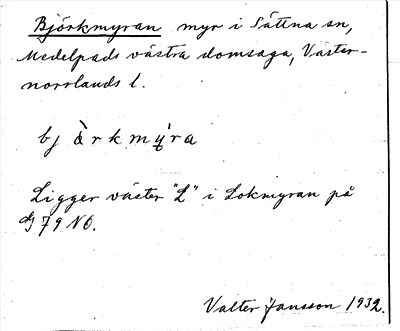 Björkmyran myr i Sättna sn,
Medelpads västra domsaga, Väster-
norrlands l.
bj ärkmy̆ra
Ligger väster "L" i Lokmyran på
79 NO.
Valter Jansson 1932.